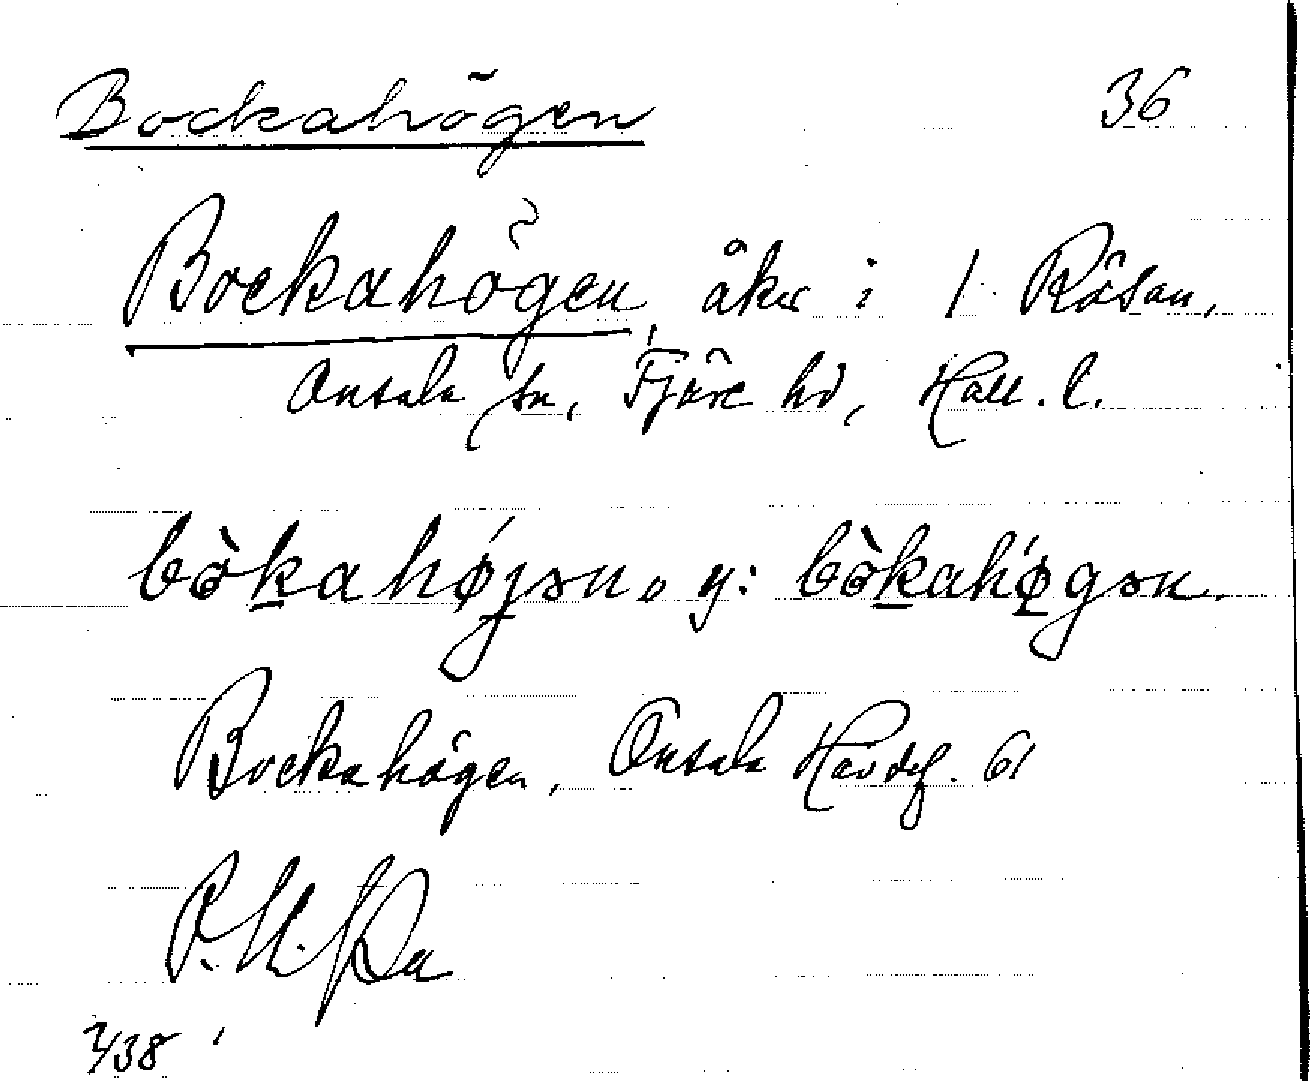 Bockahögen 36
Bockahögen, åker i 1 Rösan,
Onsala sn, Fjäre hd, Hall. l.
bòkahǿjən, y: bòkahǿgən.
Bockahögen, Onsala Havdhf. 61
7/38